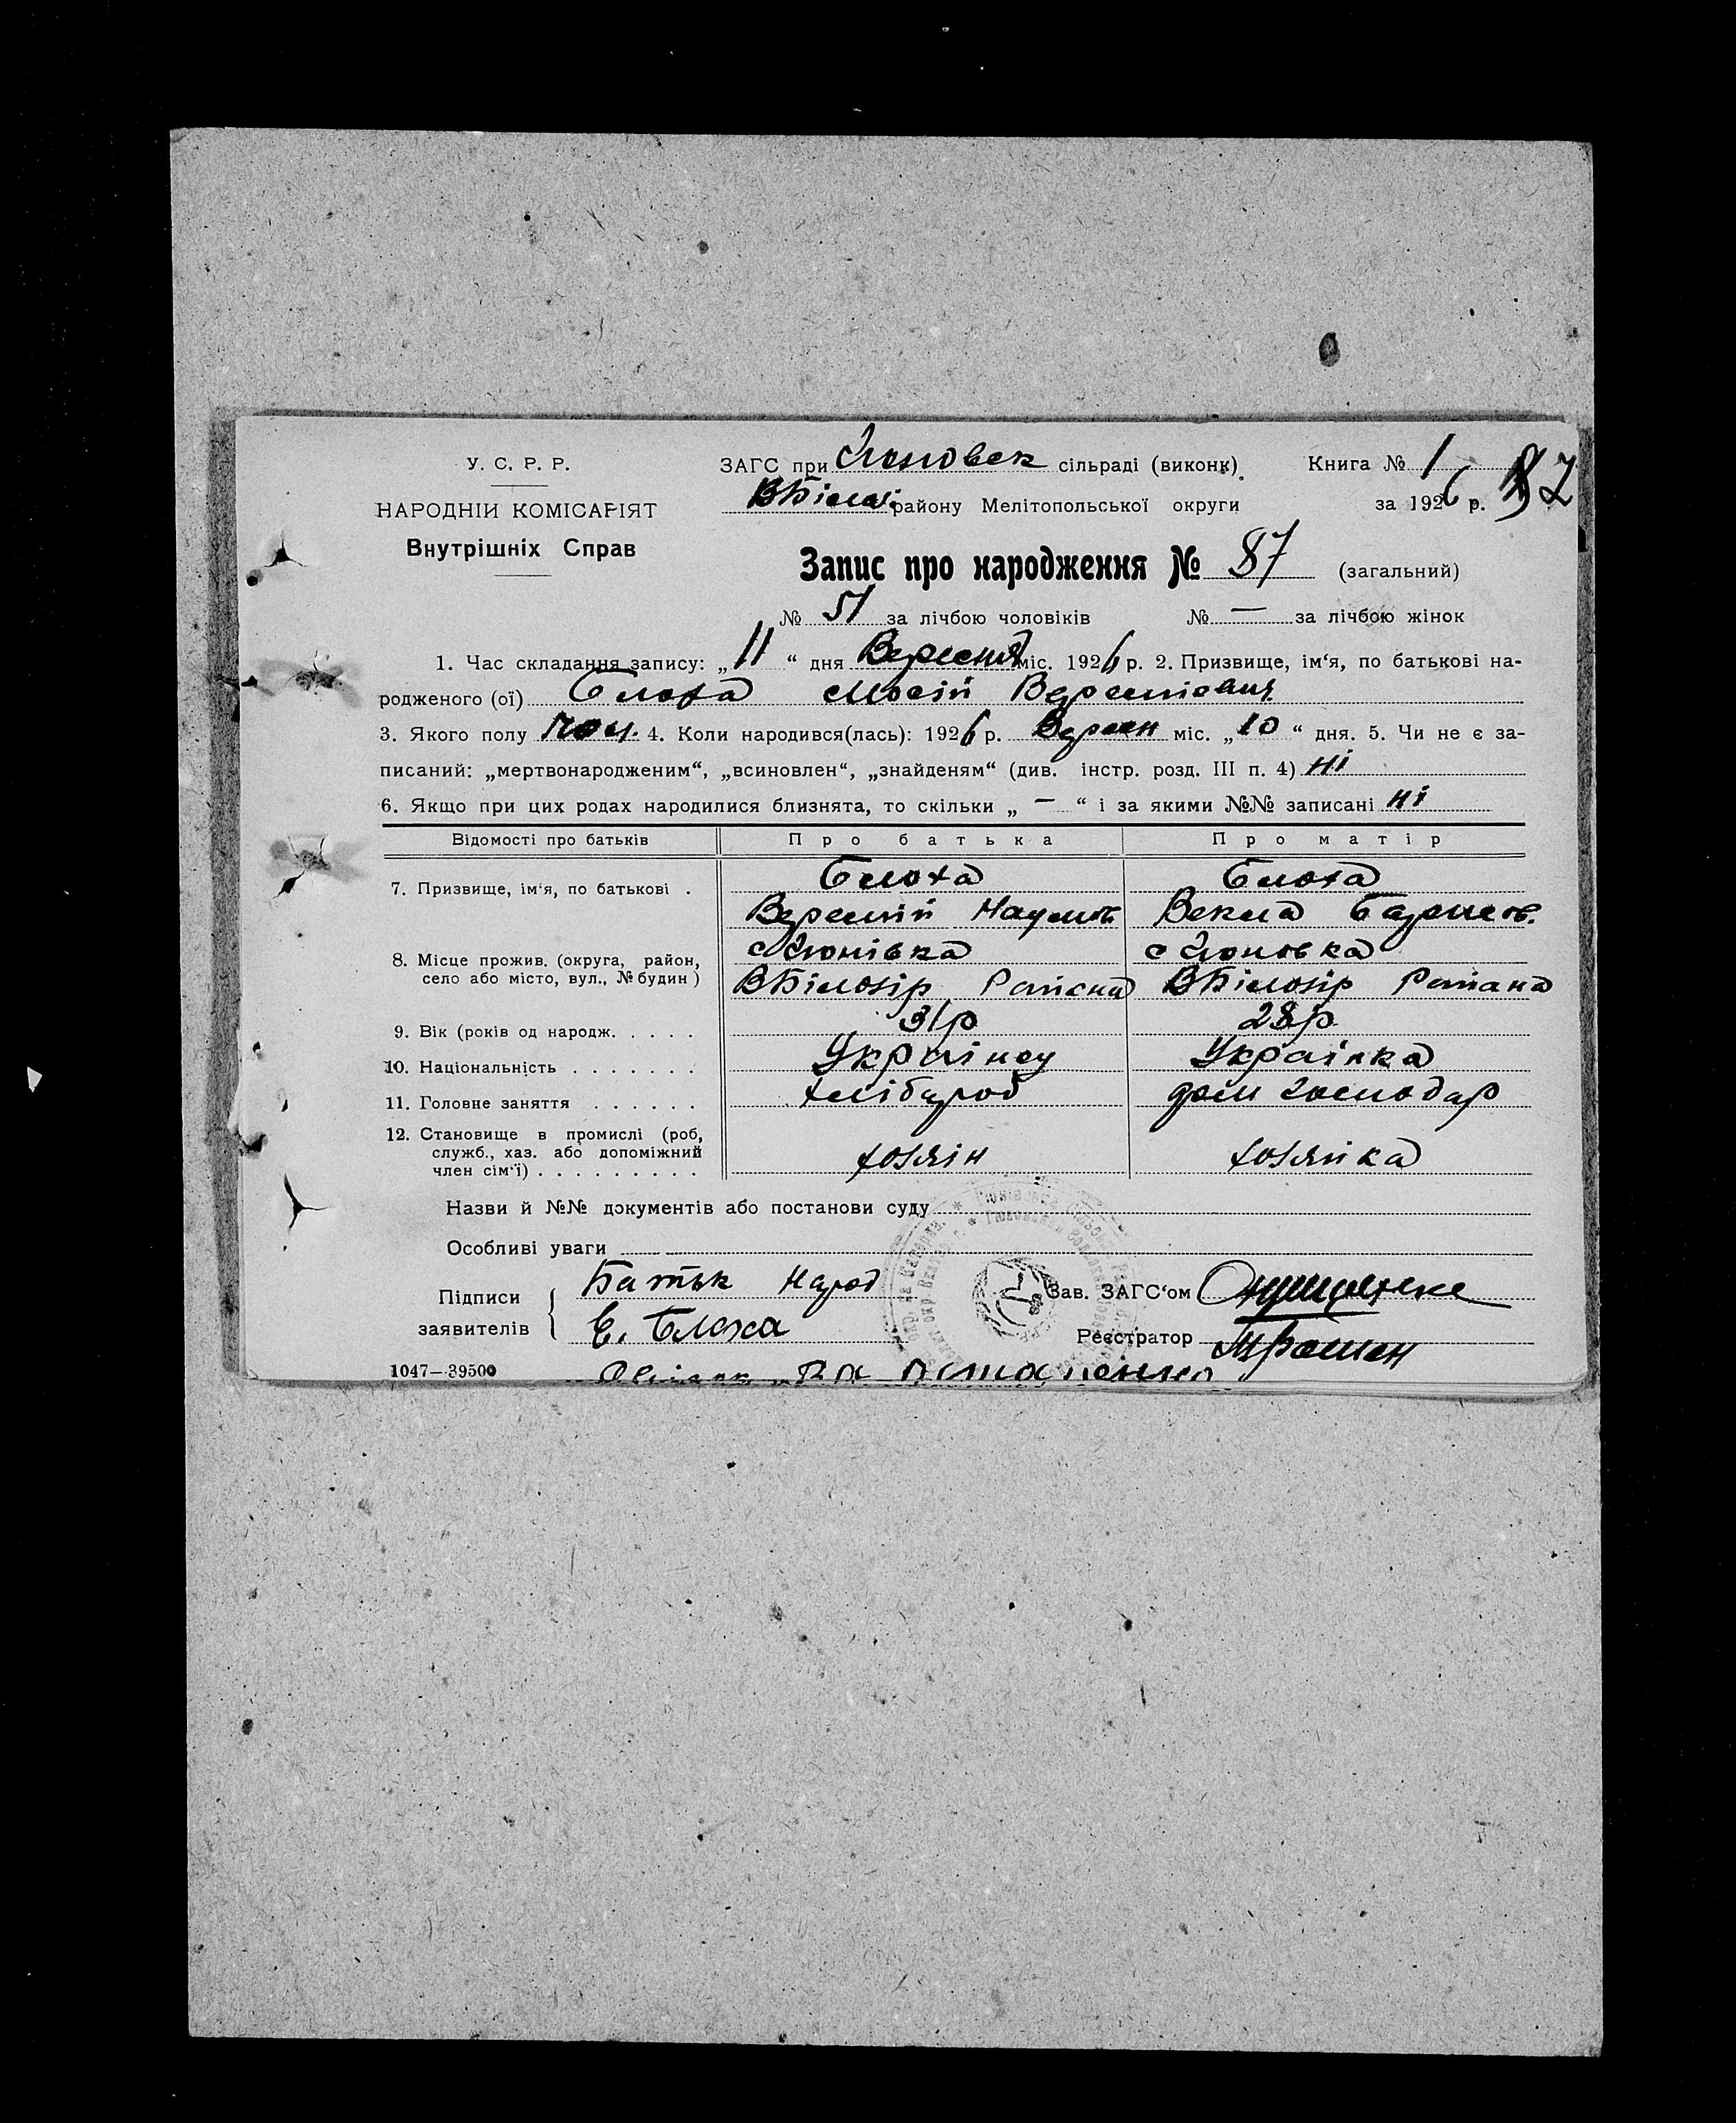 У. С. Р. Р.
НАРОДНІЙ КОМІСАРІЯТ
Внутрішніх Справ
ЗАГС при Гюновск сільраді (виконк).
ВБілоз. району Мелітопольської округи
Книга № 1
за 1926 р.
87
Запис про народження № 87 (загальний)
№ 51 за лічбою чоловіків № — за лічбою жінок
1. Час складання запису: „11“ дня Вересня міс. 1926 р. 2. Призвище, ім‘я, по батькові на-
родженого (ої) Блоха Мосій Веремієвич
3. Якого полу чол. 4. Коли народився(лась): 1926 р. Вересн міс. „10“ дня. 5. Чи не є за-
писаний: „мертвонародженим“, „всиновлен“, „знайденям“ (див. інстр. розд. III п. 4) ні
6. Якщо при цих родах народилися близнята, то скільки „ — “ і за якими №№ записані ні
Відомості про батьків Про батька Про матір
7. Призвище, ім‘я, по батькові . Блоха Блоха
Веремій Наумов Векла
8. Місце прожив. (округа, район, с Гюнівка с Гюновка
село або місто, вул., № будин) ВБілозір Района ВБілозір Района
9. Вік (років од народж. . . . . 31р 28р
10. Національність . . . . . . . Українец Українка
11. Головне заняття . . . . . . хлібороб дом господар
12. Становище в промислі (роб,
служб., хаз. або допоміжний
член сім‘ї) . . . . . . . . . хозяін хозяйка
Назви й №№ документів або постанови суду
Особливі уваги
Підписи
заявителів
Батьк
Е. Блоха
Зав. ЗАГС‘ом
Реєстратор
1047—39500